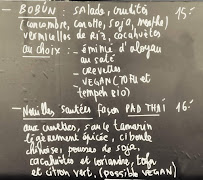 - BOBUN : salade, crudités 15.-
(concombre, carotte, soja, menthe)
vermicelles de riz, cacahuètes
au choix : - émincé d'aloyau
au saté
- crevettes
- VEGAN (TOFU et
tempeh BIO)
- Nouilles sautées façon PAD THAI 16.-
aux crevettes, sauce tamarin
légèrement épicée, ciboule
chinoise, pousses de soja,
cacahuètes et coriandre, tofu
et citron vert. (possible VEGAN)